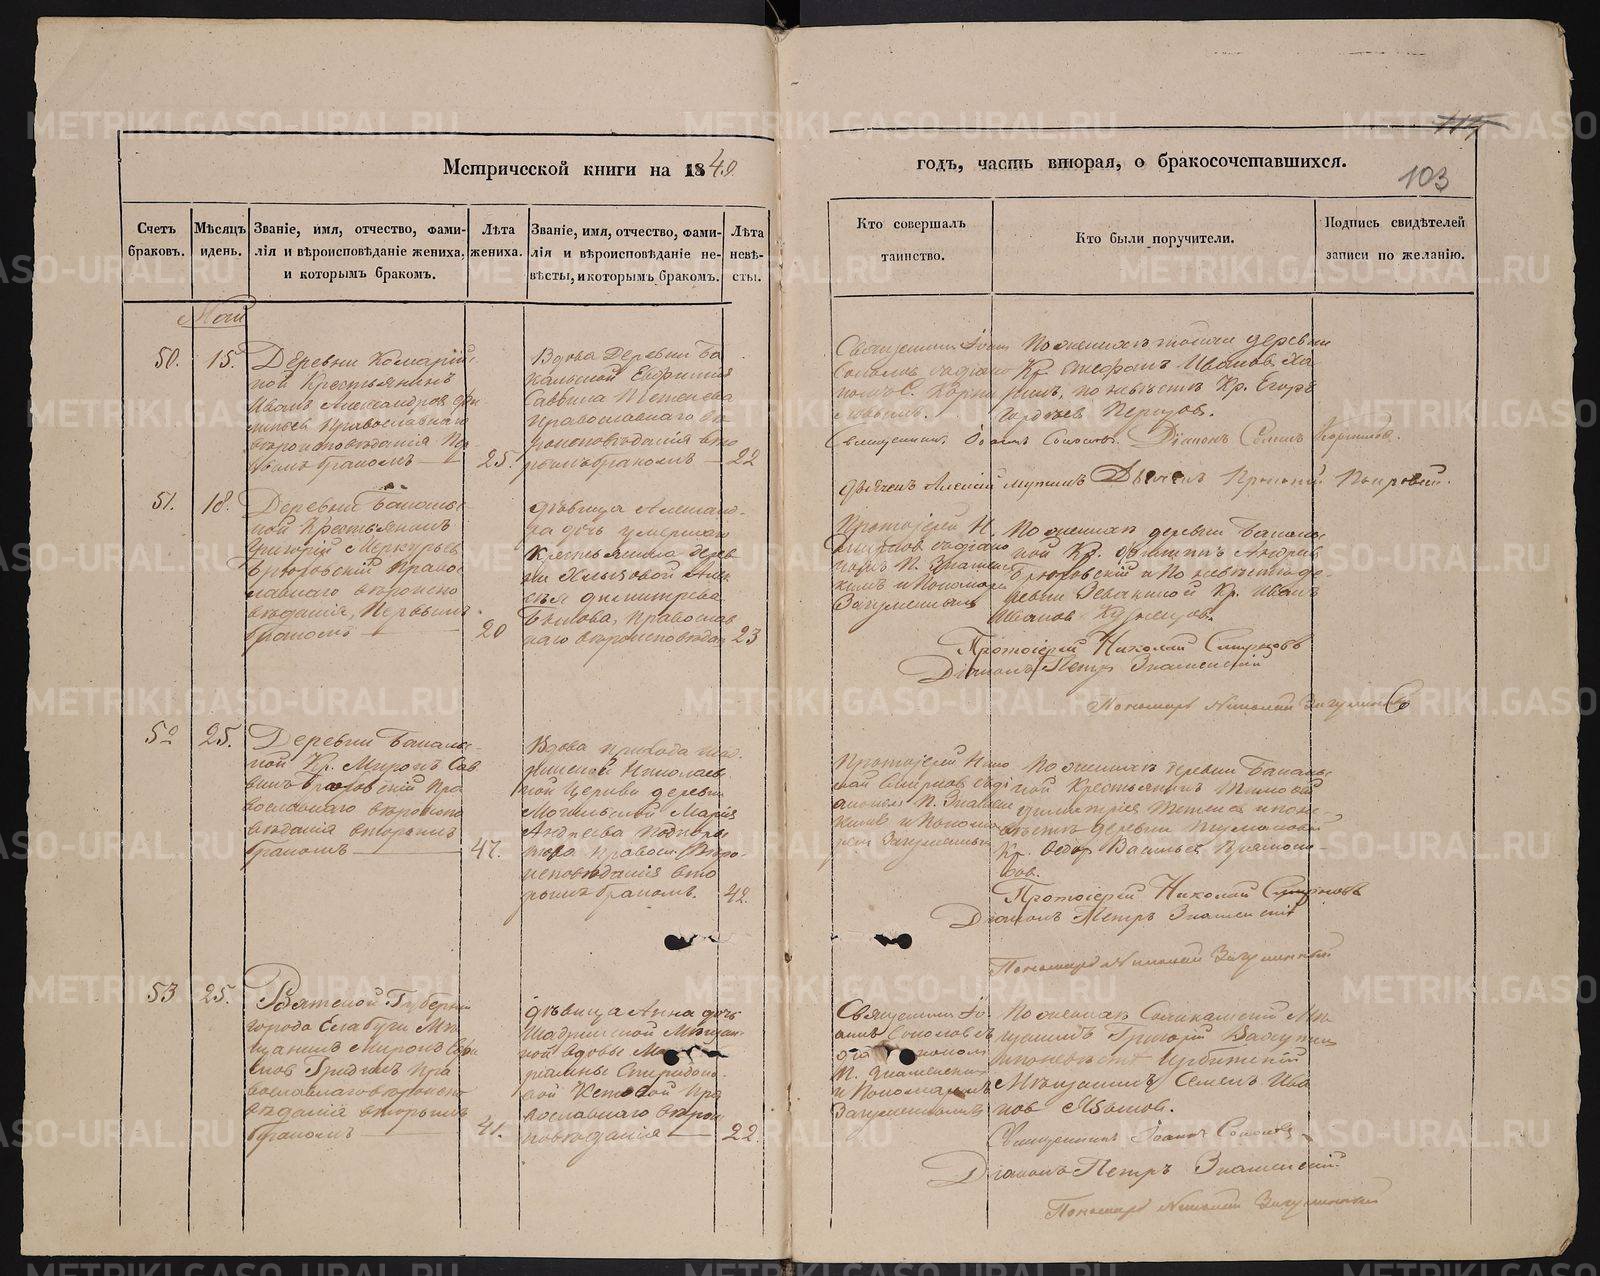 Метрической книги на 1840
годъ, часть вторая, о бракосочетавшихся.
103
Счетъ браковъ.
Мѣсяцъ идень.
Званіе, имя, отчество, фами-
лія и вѣроисповѣданіе жениха,
и которымъ бракомъ.
Лѣта
жениха.
Званіе, имя, отчество, фами-
лія и вѣроисповѣданіе не-
вѣсты, и которымъ бракомъ.
Лѣта
невѣ-
сты.
Кто совершалъ
таинство.
Кто были поручители.
Подпись свидѣтелей
записи по желанію.
Май
50.
15.
Деревни
ной Крестьянинъ
Иванъ Александровъ
Православнаго
вѣроисповѣданія Пер
вымъ бракомъ
25.
Вдова Деревни Ба
кальской Евфимия
Саввина Тетенева
Православнаго вѣ
роисповѣданія вто
рымъ бракомъ
22
Священникъ Іоан
Соколовъ съ діако
номъ С.
По женихѣ тоже деревни
Кр. Стефанъ Ивановъ
по невѣстѣ Кр. Егоръ
Священникъ Іоаннъ Соколовъ. Діаконъ Симеонъ
Дьячекъ Алексій
51.
18.
Деревни Бакаль
ской Крестьянинъ
Григорій Меркурьевъ
Брюховскій Право
славнаго вѣроиспо
вѣданія, Первымъ
бракомъ
20
Дѣвица Алексан-
ра дочь умершаго
Крестьянина дерев
ни
Димитрева
Бѣлова, Православ
наго вѣроисповѣдан
23
Протоіерей Н.
Смирновъ съ діако
номъ П. Знаменс
кимъ и Пономаремъ
Загуменнымъ
По женихѣ деревни Бакаль
ской Кр. Филиппъ Андрѣев
Брюховскій и По невѣстѣ де-
ревни Кр. Иванъ
Ивановъ Кузнецовъ.
Протоіерей Николай Смирновъ
Діаконъ Петръ Знаменскій
Пономарь Николай Загуменновъ
52
25.
Деревни Бакаль-
ской Кр. Миронъ Сав
винъ Брюховскій Пра
вославнаго вѣроиспо
вѣданія вторымъ
бракомъ
47.
Вдова прихода
Николаев
ской Церкви деревни
Могильской Марія
Андреева
Правосл. Вѣро-
исповѣданія вто
рымъ бракомъ.
42.
Протоіерей Нико
лай Смирновъ съ ді
акономъ П. Знамен
скимъ и Понома
ремъ Загуменнымъ
По женихѣ деревни Бакаль
ской Крестьянинъ Тимофѣй
Димитріевъ Тетеневъ и по не-
вѣстѣ деревни
Кр. Ѳедор Васильевъ
Протоіерей Николай Смирновъ
Діаконъ Петръ Знаменскій
Пономарь Николай Загуменный
53
25.
Вятской Губерніи
города Елабуги Мѣ
щанинъ Миронъ
Пра
вославнаго вѣроиспо
вѣданія вторымъ
бракомъ
41.
Дѣвица Анна дочь
Шадринской Мѣщан
ской вдовы
Спиридоно-
вой Кетовой Пра
вославнаго вѣроис
повѣданія
22.
Священникъ Іо-
аннъ Соколовъ съ
діакономъ
П. Знаменскимъ
и Пономаремъ
Загуменнымъ
По женихѣ Соликамскій Мѣ
щанинъ Григорій
и по невѣстѣ Ирбитскій
Мѣщанинъ Семенъ Ива
новъ
Священникъ Іоаннъ Соколовъ
Діаконъ Петръ Знаменскій
Пономарь Николай Загуменный
METRIKI.GASO-URAL.RU